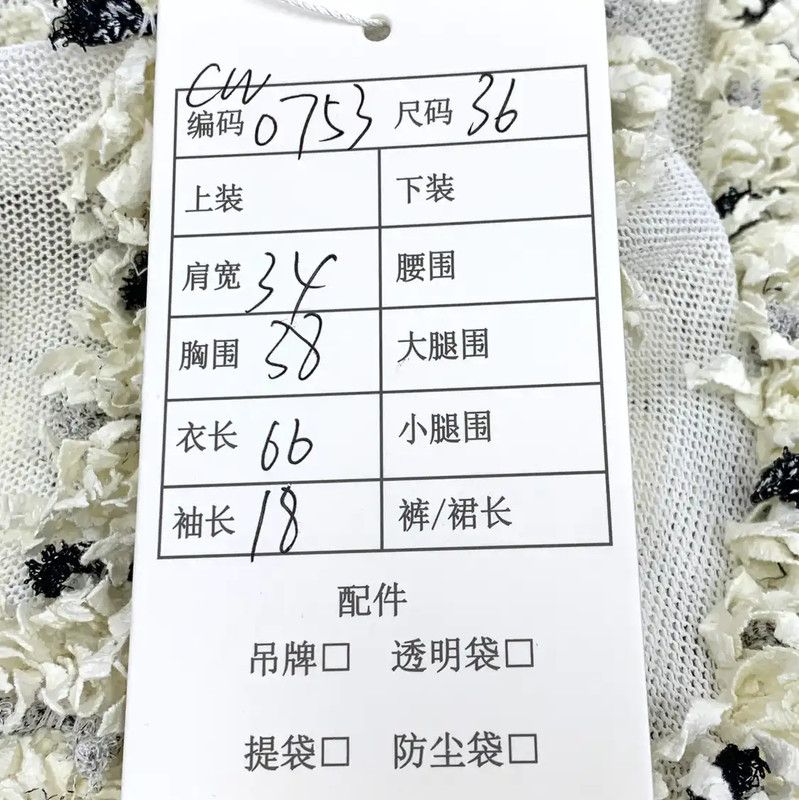 CW
编码 0753 尺码 36
上装 下装
肩宽 34 腰围
胸围 38 大腿围
衣长 66 小腿围
袖长 18 裤/裙长
配件
吊牌□ 透明袋□
提袋□ 防尘袋□